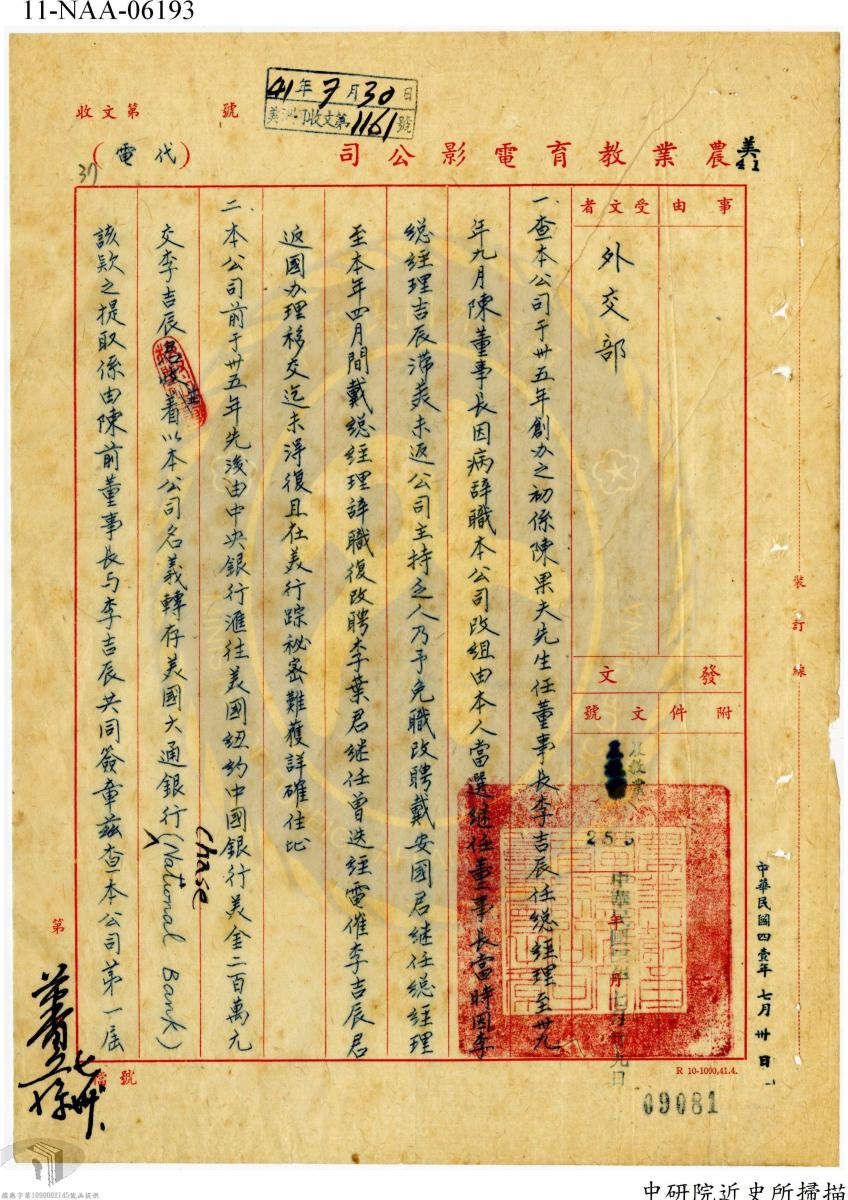 11-NAA-06193
收文第 號
41年7月30日
美洲司收文第1161號
農業教育電影公司(代電)
37
事由
受文者
外交部
發文
附件
文號
255
中華民國四壹年七月廿九日
一、查本公司于卅五年創办之初係陳果夫先生任董事長李吉辰任總經理至卅九
年九月陳董事長因病辞職本公司改組由本人當選継任董事長當時因李
總經理吉辰滞美未返公司主持乏人乃予免職改聘戴安國君継任總經理
至本年四月間戴總經理辞職復改聘李葉君継任曾迭經電催李吉辰君
返國办理移交迄未淂復且在美行踪秘密難獲詳確住址
二、本公司前于卅五年先後由中央銀行滙往美國紐約中國銀行美金二百萬元
交李吉辰 着以本公司名義轉存美國大通銀行(Chase National Bank)
該欵之提取係由陳前董事長与李吉辰共同簽章兹查本公司第一屆
裝訂線
中華民國四壹年七月卅日
R 10-1000,41.4.
09081
第
檔號
七卅
檔應字第1090002145號函提供
中研院近史所掃描